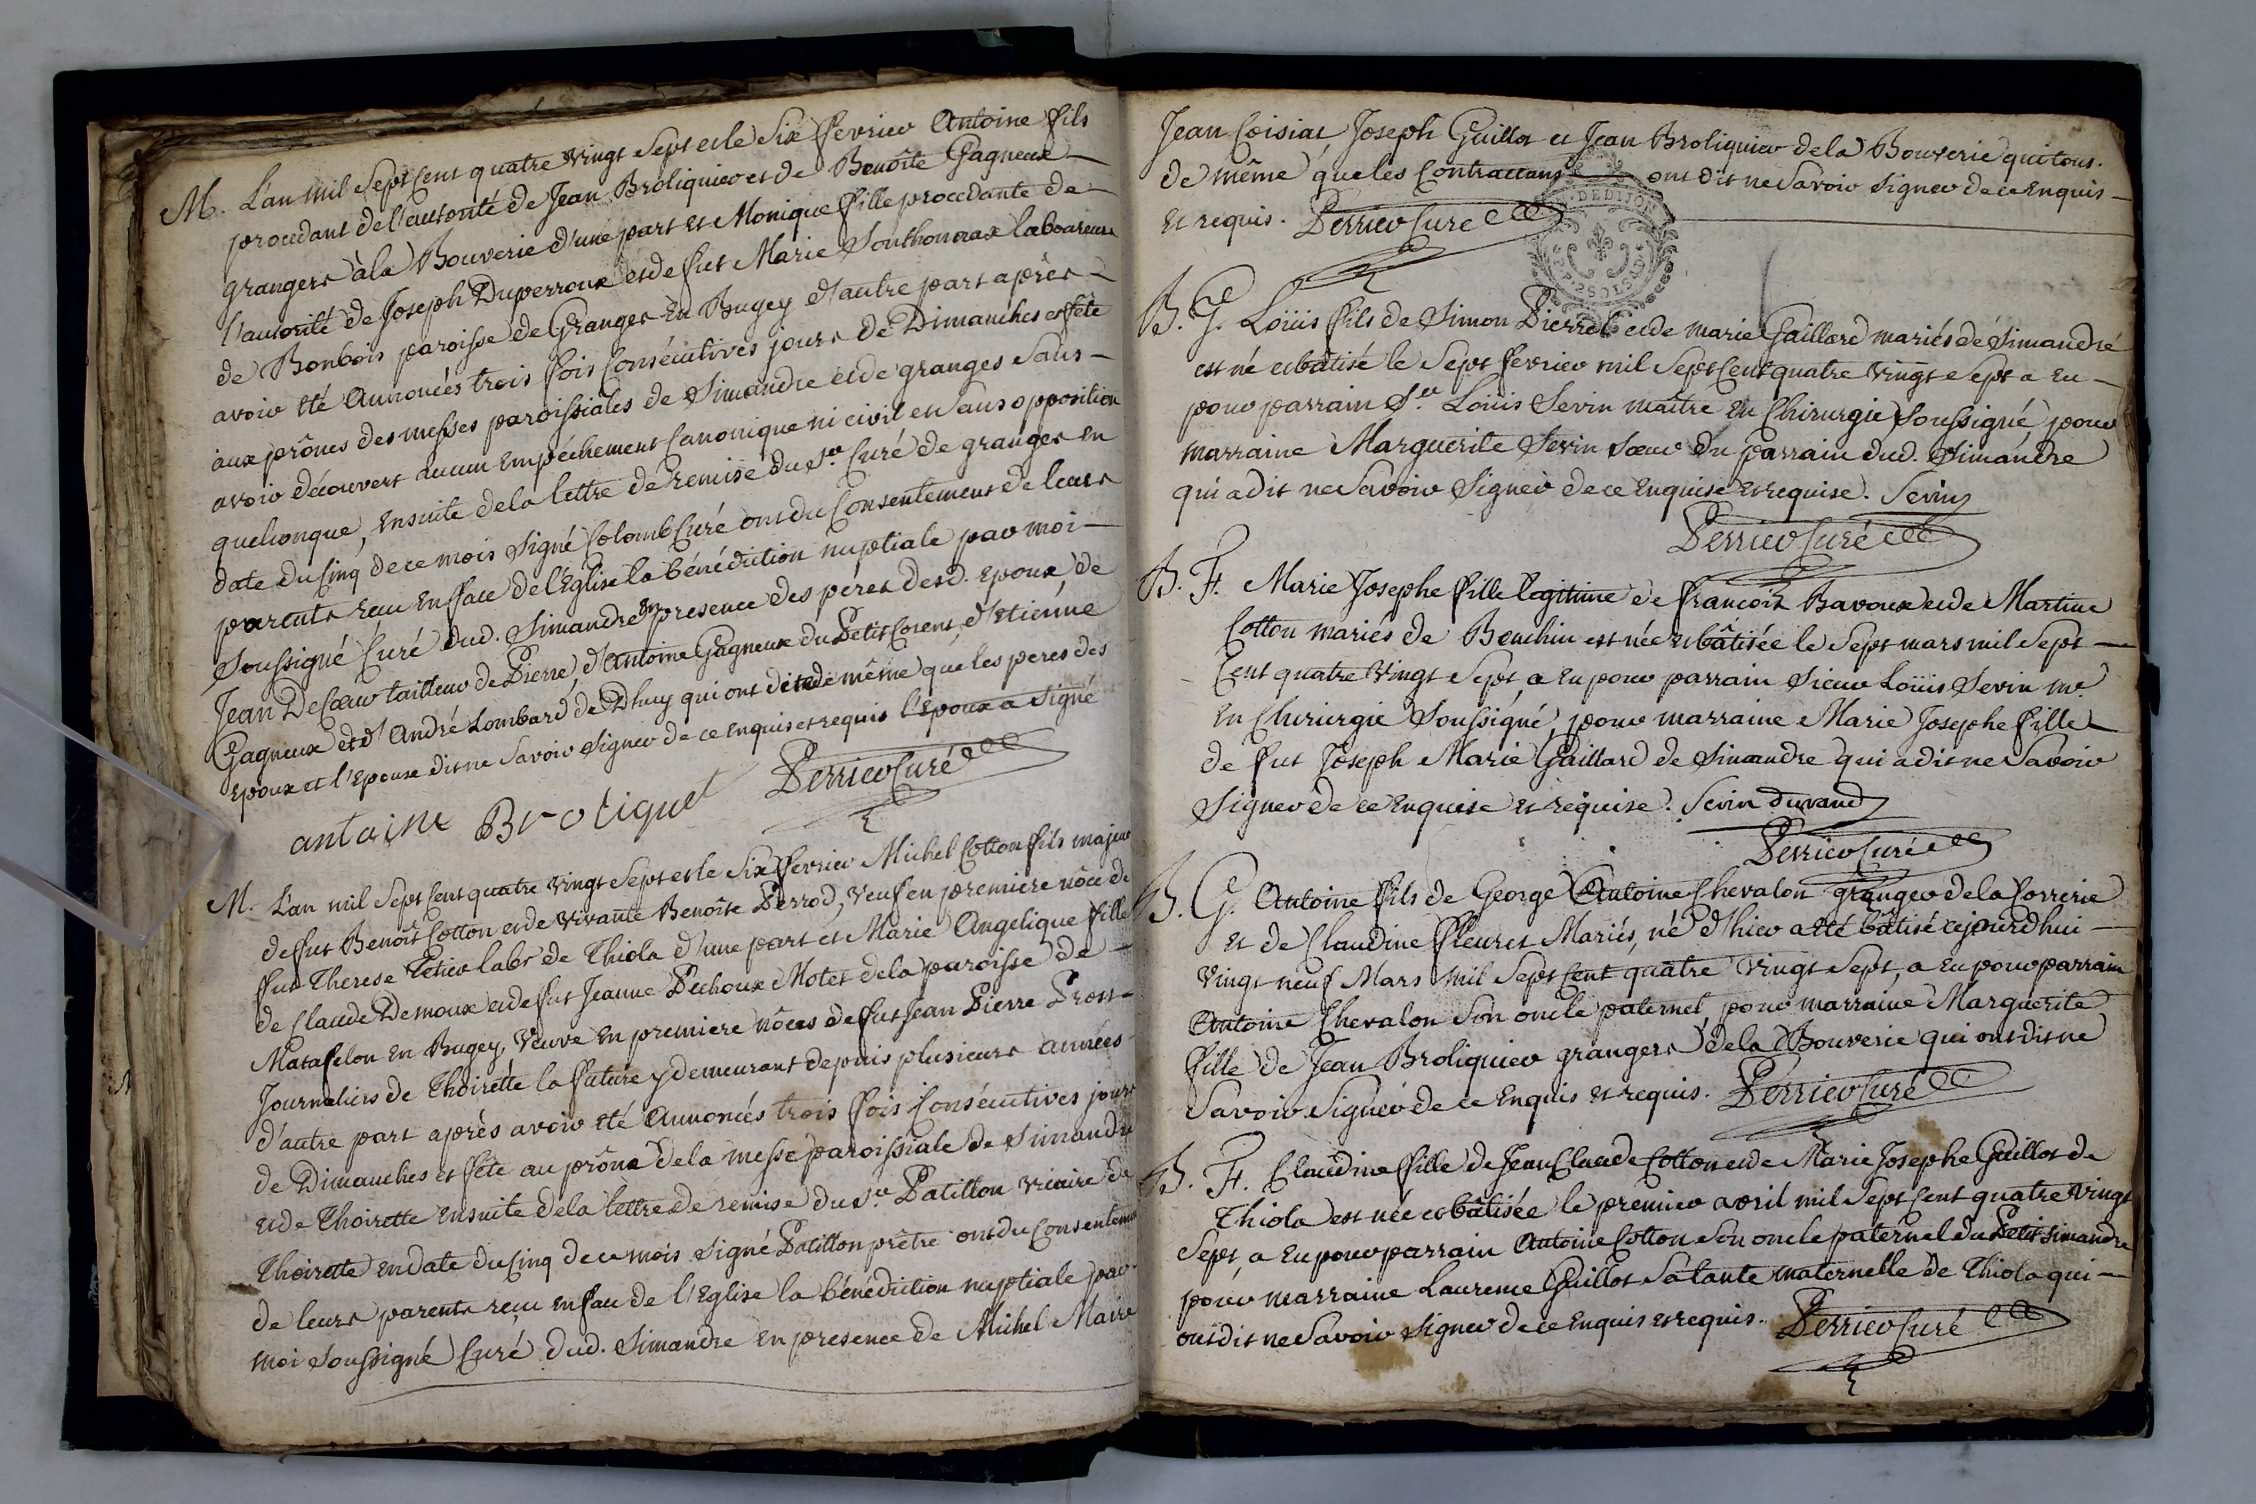 M. L'an mil Sept Cent quatre vingt Sept et le Six fevrier Antoine fils
procedant de l'autorité de Jean Broliquier et de Benoîte Gagneux
grangers à la Bouverie d'une part et Monique fille procedante de
l'autorité de Joseph Duperroux et de fut Marie Southonnax laboureurs
de Bonbois paroisse de Granges En Bugey d'autre part après
avoir été Annoncés trois fois Consécutives jours de Dimanches et fête
aux prônes des messes paroissiales de Simandre et de granges Sans
avoir découvert aucun Empêchement Canonique ni civil et Sans opposition
quelconque, Ensuite de la lettre de remise du Sr Curé de granges en
date du Cinq de ce mois Signé Colomb Curé ont du Consentement de leurs
parents reçu En face de l'Eglise la bénédiction nuptiale par moi
Soussigné Curé dud. Simandre En presence des peres desd. Epoux, de
Jean DeCœur tailleur de Pierre, d'Antoine Gagneux du Petit Corent, d'Etienne
Gagneux et d'André Lombard de Dhuy qui ont dit de même que les peres des
Epoux et l'Epouse dit ne Savoir Signer de ce Enquis et requis l'Epoux a Signé
antoine Brotiquet Perrier Curé
M. L'an mil Sept Cent quatre vingt Sept et le Six fevrier Michel Cotton fils majeur
de fut Benoit Cotton et de vivante Benoîte Perrod, Veuf en premiere nôce de
fut Therese Tetier labr de Thiola d'une part et Marie Angelique fille
de Claude Demoux et de fut Jeanne Pechoux Motet de la paroisse de
Matafelon En Bugey, Veuve En premiere nôces de fut Jean Pierre Prost
Journaliers de Thoirette la future y demeurant depuis plusieurs années
d'autre part après avoir été Annoncés trois fois Consécutives jours
de Dimanches et fête au prône de la messe paroissiale de Simandre
et de Thoirette Ensuite de la lettre de remise du Sr Patillon Vicaire de
Thoirette en date du Cinq de ce mois Signé Patillon prêtre ont du Consentement
de leurs parents reçu En face de l'Eglise la bénédiction nuptiale par
moi Soussigné Curé dud. Simandre En presence de Michel Maire
Jean Coisiat, Joseph Guillot et Jean Broliquier de la Bouverie qui tous
de même que les Contractans ont dit ne Savoir Signer de ce Enquis
Et requis. Perrier Curé
B. G. Loüis fils de Simon Pierrel et de marie Gaillard mariés de Simandré
est né et batisé le Sept fevrier mil Sept Cent quatre vingt Sept a Eu
pour parrain Sr Loüis Sevin maître En Chirurgie Soussigné pour
marraine Marguerite Sevin Sœur du parrain dud. Simandre
qui a dit ne Savoir Signer de ce Enquise et requise. Sevin
Perrier Curé
B. F. Marie Josephe fille legitime de françois Bavoux et de Martine
Cotton mariés de Bouchin est née et bâtisée le Sept mars mil Sept
Cent quatre Vingt Sept, a Eu pour parrain Sieur Loüis Sevin me
En Chirurgie Soussigné, pour marraine Marie Josephe fille
de fut Joseph Marie Gaillard de Simandre qui a dit ne Savoir
Signer de ce Enquise et requise. Sevin durand
Perrier Curé
B. G. Antoine fils de George Antoine Chevalon granger de la Correrie
et de Claudine Fleuret Mariés, né d'hier a été bâtisé cejourd'hui
vingt neuf Mars Mil Sept Cent quatre vingt Sept, a Eu pour parrain
Antoine Chevalon Son oncle paternel, pour marraine Marguerite
fille de Jean Broliquier grangers de la Bouverie qui ont dit ne
Savoir Signer de ce Enquis et requis. Perrier Curé
B. F. Claudine fille de Jean Claude Cotton et de Marie Josephe Guillot de
Thiola est née et bâtisée le premier avril mil Sept Cent quatre vingt
Sept, a Eu pour parrain Antoine Cotton Son oncle paternel du Petit Simandre
pour marraine Laurence Guillot Sa tante maternelle de Thiola qui
ont dit ne Savoir Signer de ce Enquis et requis. Perrier Curé